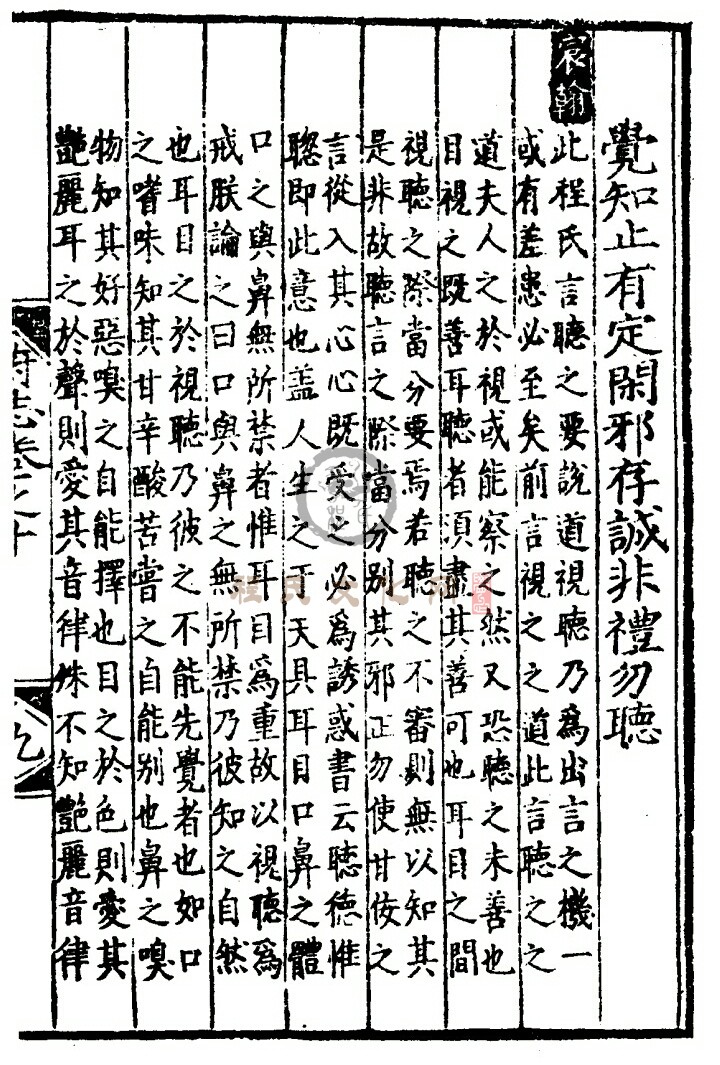 覺知止有定閑邪存誠非禮勿聽
宸翰
此程氏言聽之要說道視聽乃爲出言之機一
或有差患必至矣前言視之之道此言聽之之
道夫人之於視或能察之然又恐聽之未善也
目視之既善耳聽者須盡其善可也耳目之間
視聽之際當分要焉若聽之不審則無以知其
是非故聽言之際當分別其邪正勿使甘佞之
言從入其心心既受之必爲誘惑書云聽德惟
聰即此意也盖人生之于天具耳目口鼻之體
口之與鼻無所禁者惟耳目爲重故以視聽爲
戒朕論之曰口與鼻之無所禁乃彼知之自然
也耳目之於視聽乃彼之不能先覺者也如口
之嗜味知其甘辛酸苦嘗之自能別也鼻之嗅
物知其好惡嗅之自能擇也目之於色則愛其
艷麗耳之於聲則愛其音律殊不知艷麗音律
府志卷之十
九
程氏文化网